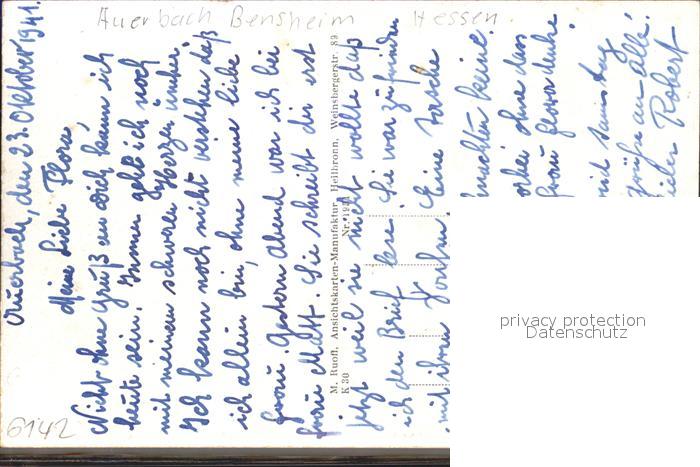 Auerbach Bensheim Hessen
Auerbach, den 23. Oktober 1941.
Meine Liebe Flora,
Nicht ohne Gruß an dich kann ich
heute sein. Immer geht ich noch
mit meinem schweren Herzen umher.
Ich kann noch nicht verstehen daß
ich allein bin, ohne meine liebe
Frau. Gestern Abend war ich bei
Frau Matt. Sie schreibt dir erst
jetzt weil sie nicht wollte daß
ich den Brief lese. Sie war zufrieden
mit ihren
Eine Tasche
machten keine
ohne dass
Frau Flora
sind
Grüße an alle.
Robert
M. Ruoff, Ansichtskarten-Manufaktur, Heilbronn, Weinsbergerstr. 89
K 30 Nr. 1941
6142
privacy protection
Datenschutz